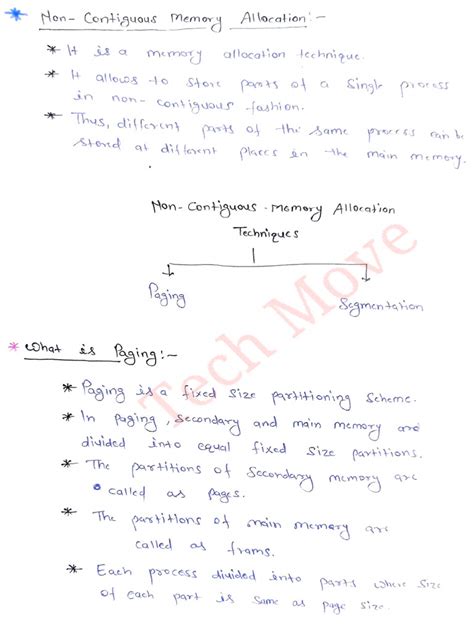 * Non-Contiguous Memory Allocation:-
* It is a memory allocation technique.
* It allows to store parts of a single process
in non-contiguous fashion.
* Thus, different parts of the same process can be
stored at different places in the main memory.
Non-Contiguous-Memory Allocation
Techniques
Paging
Segmentation
* What is Paging:-
* Paging is a fixed size partitioning scheme.
* In paging, secondary and main memory are
divided into equal fixed size partitions.
* The partitions of secondary memory are
called as pages.
* The partitions of main memory are
called as frams.
* Each process divided into parts where size
of each part is same as page size.
Tech Move